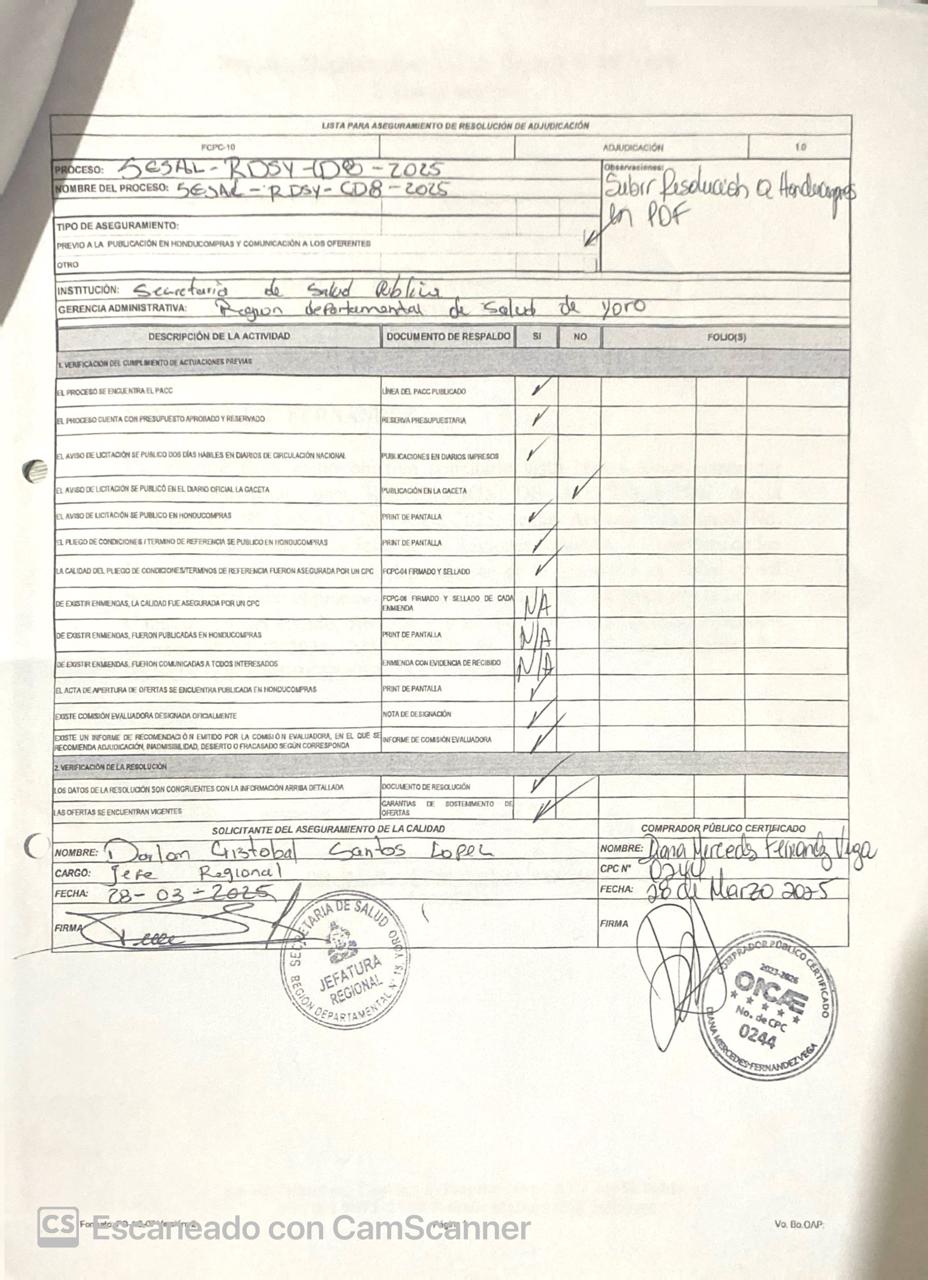 LISTA PARA ASEGURAMIENTO DE RESOLUCIÓN DE ADJUDICACIÓN
FCPC-10 ADJUDICACIÓN 1.0
PROCESO: SESAL-RDSY-CD8-2025
NOMBRE DEL PROCESO: SESAL-RDSY-CD8-2025
Observaciones:
Subir Resolución a Honducompras
en PDF
TIPO DE ASEGURAMIENTO:
PREVIO A LA PUBLICACIÓN EN HONDUCOMPRAS Y COMUNICACIÓN A LOS OFERENTES ✓
OTRO
INSTITUCIÓN: Secretaria de Salud Publica
GERENCIA ADMINISTRATIVA: Region departamental de Salud de Yoro
DESCRIPCIÓN DE LA ACTIVIDAD DOCUMENTO DE RESPALDO SI NO FOLIO(S)
1. VERIFICACIÓN DEL CUMPLIMIENTO DE ACTUACIONES PREVIAS
EL PROCESO SE ENCUENTRA EL PACC LÍNEA DEL PACC PUBLICADO ✓
EL PROCESO CUENTA CON PRESUPUESTO APROBADO Y RESERVADO RESERVA PRESUPUESTARIA ✓
EL AVISO DE LICITACIÓN SE PUBLICO DOS DÍAS HÁBILES EN DIARIOS DE CIRCULACIÓN NACIONAL PUBLICACIONES EN DIARIOS IMPRESOS ✓
EL AVISO DE LICITACIÓN SE PUBLICÓ EN EL DIARIO OFICIAL LA GACETA PUBLICACIÓN EN LA GACETA ✓
EL AVISO DE LICITACIÓN SE PUBLICO EN HONDUCOMPRAS PRINT DE PANTALLA ✓
EL PLIEGO DE CONDICIONES /TERMINO DE REFERENCIA SE PUBLICO EN HONDUCOMPRAS PRINT DE PANTALLA ✓
LA CALIDAD DEL PLIEGO DE CONDICIONES/TERMINOS DE REFERENCIA FUERON ASEGURADA POR UN CPC FCPC-04 FIRMADO Y SELLADO ✓
DE EXISTIR ENMIENDAS, LA CALIDAD FUE ASEGURADA POR UN CPC FCPC-06 FIRMADO Y SELLADO DE CADA ENMIENDA N/A
DE EXISTIR ENMIENDAS, FUERON PUBLICADAS EN HONDUCOMPRAS PRINT DE PANTALLA N/A
DE EXISTIR ENMIENDAS, FUERON COMUNICADAS A TODOS INTERESADOS ENMIENDA CON EVIDENCIA DE RECIBIDO N/A
EL ACTA DE APERTURA DE OFERTAS SE ENCUENTRA PUBLICADA EN HONDUCOMPRAS PRINT DE PANTALLA ✓
EXISTE COMISIÓN EVALUADORA DESIGNADA OFICIALMENTE NOTA DE DESIGNACIÓN ✓
EXISTE UN INFORME DE RECOMENDACIÓN EMITIDO POR LA COMISIÓN EVALUADORA, EN EL QUE SE
RECOMENDA ADJUDICACIÓN, INADMISIBILIDAD, DESIERTO O FRACASADO SEGÚN CORRESPONDA INFORME DE COMISIÓN EVALUADORA ✓
2. VERIFICACIÓN DE LA RESOLUCIÓN
LOS DATOS DE LA RESOLUCIÓN SON CONGRUENTES CON LA INFORMACIÓN ARRIBA DETALLADA DOCUMENTO DE RESOLUCIÓN ✓
LAS OFERTAS SE ENCUENTRAN VIGENTES GARANTIAS DE SOSTENIMIENTO DE OFERTAS ✓
SOLICITANTE DEL ASEGURAMIENTO DE LA CALIDAD COMPRADOR PÚBLICO CERTIFICADO
NOMBRE: Darlon Cristobal Santos Lopez NOMBRE: Diana Mercedes Fernandez Vega
CARGO: Jefe Regional CPC Nº 0244
FECHA: 28-03-2025 FECHA: 28 de Marzo 2025
FIRMA FIRMA
SECRETARIA DE SALUD
JEFATURA
REGIONAL
REGION DEPARTAMENTAL Nº 18, YORO
COMPRADOR PÚBLICO CERTIFICADO
2023-2026
ONCAE
No. de CPC
0244
DIANA MERCEDES FERNANDEZ VEGA
CS Escaneado con CamScanner
Página 1
Vo. Bo. OAP: